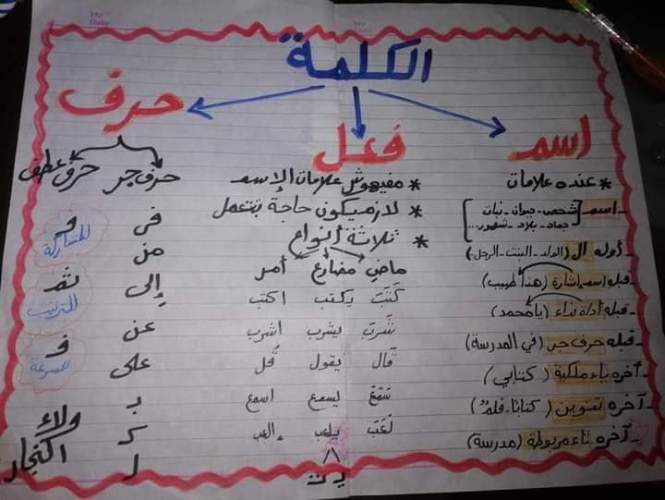 الكلمة
اسم
فعل
حرف
* عنده علامات
- اسم [شخص - حيوان - نبات
جماد - بلاد - شهور...]
- أوله ال (الولد - البنت - الرجل)
- قبله اسم إشارة (هذا طبيب)
- قبله أداة نداء (يا محمد)
- قبله حرف جر (في المدرسة)
- آخره ياء ملكية (كتابي)
- آخره تنوين (كتابًا - قلمٌ)
- آخره تاء مربوطة (مدرسة)
* مفيهوش علامات الإسم
* لازم يكون حاجة بتعمل
* ثلاثة أنواع
ماضي مضارع أمر
كَتَبَ يكتب اكتب
شَرِبَ يشرب اشرب
قال يقول قُل
سَمِعَ يسمع اسمع
لَعِبَ يلعب العب
حرف جر
فى
من
إلى
عن
على
بـ
كـ
لـ
حرف عطف
و
للمشاركة
ثم
للترتيب
فـ
للسرعة
ولاء
النجار